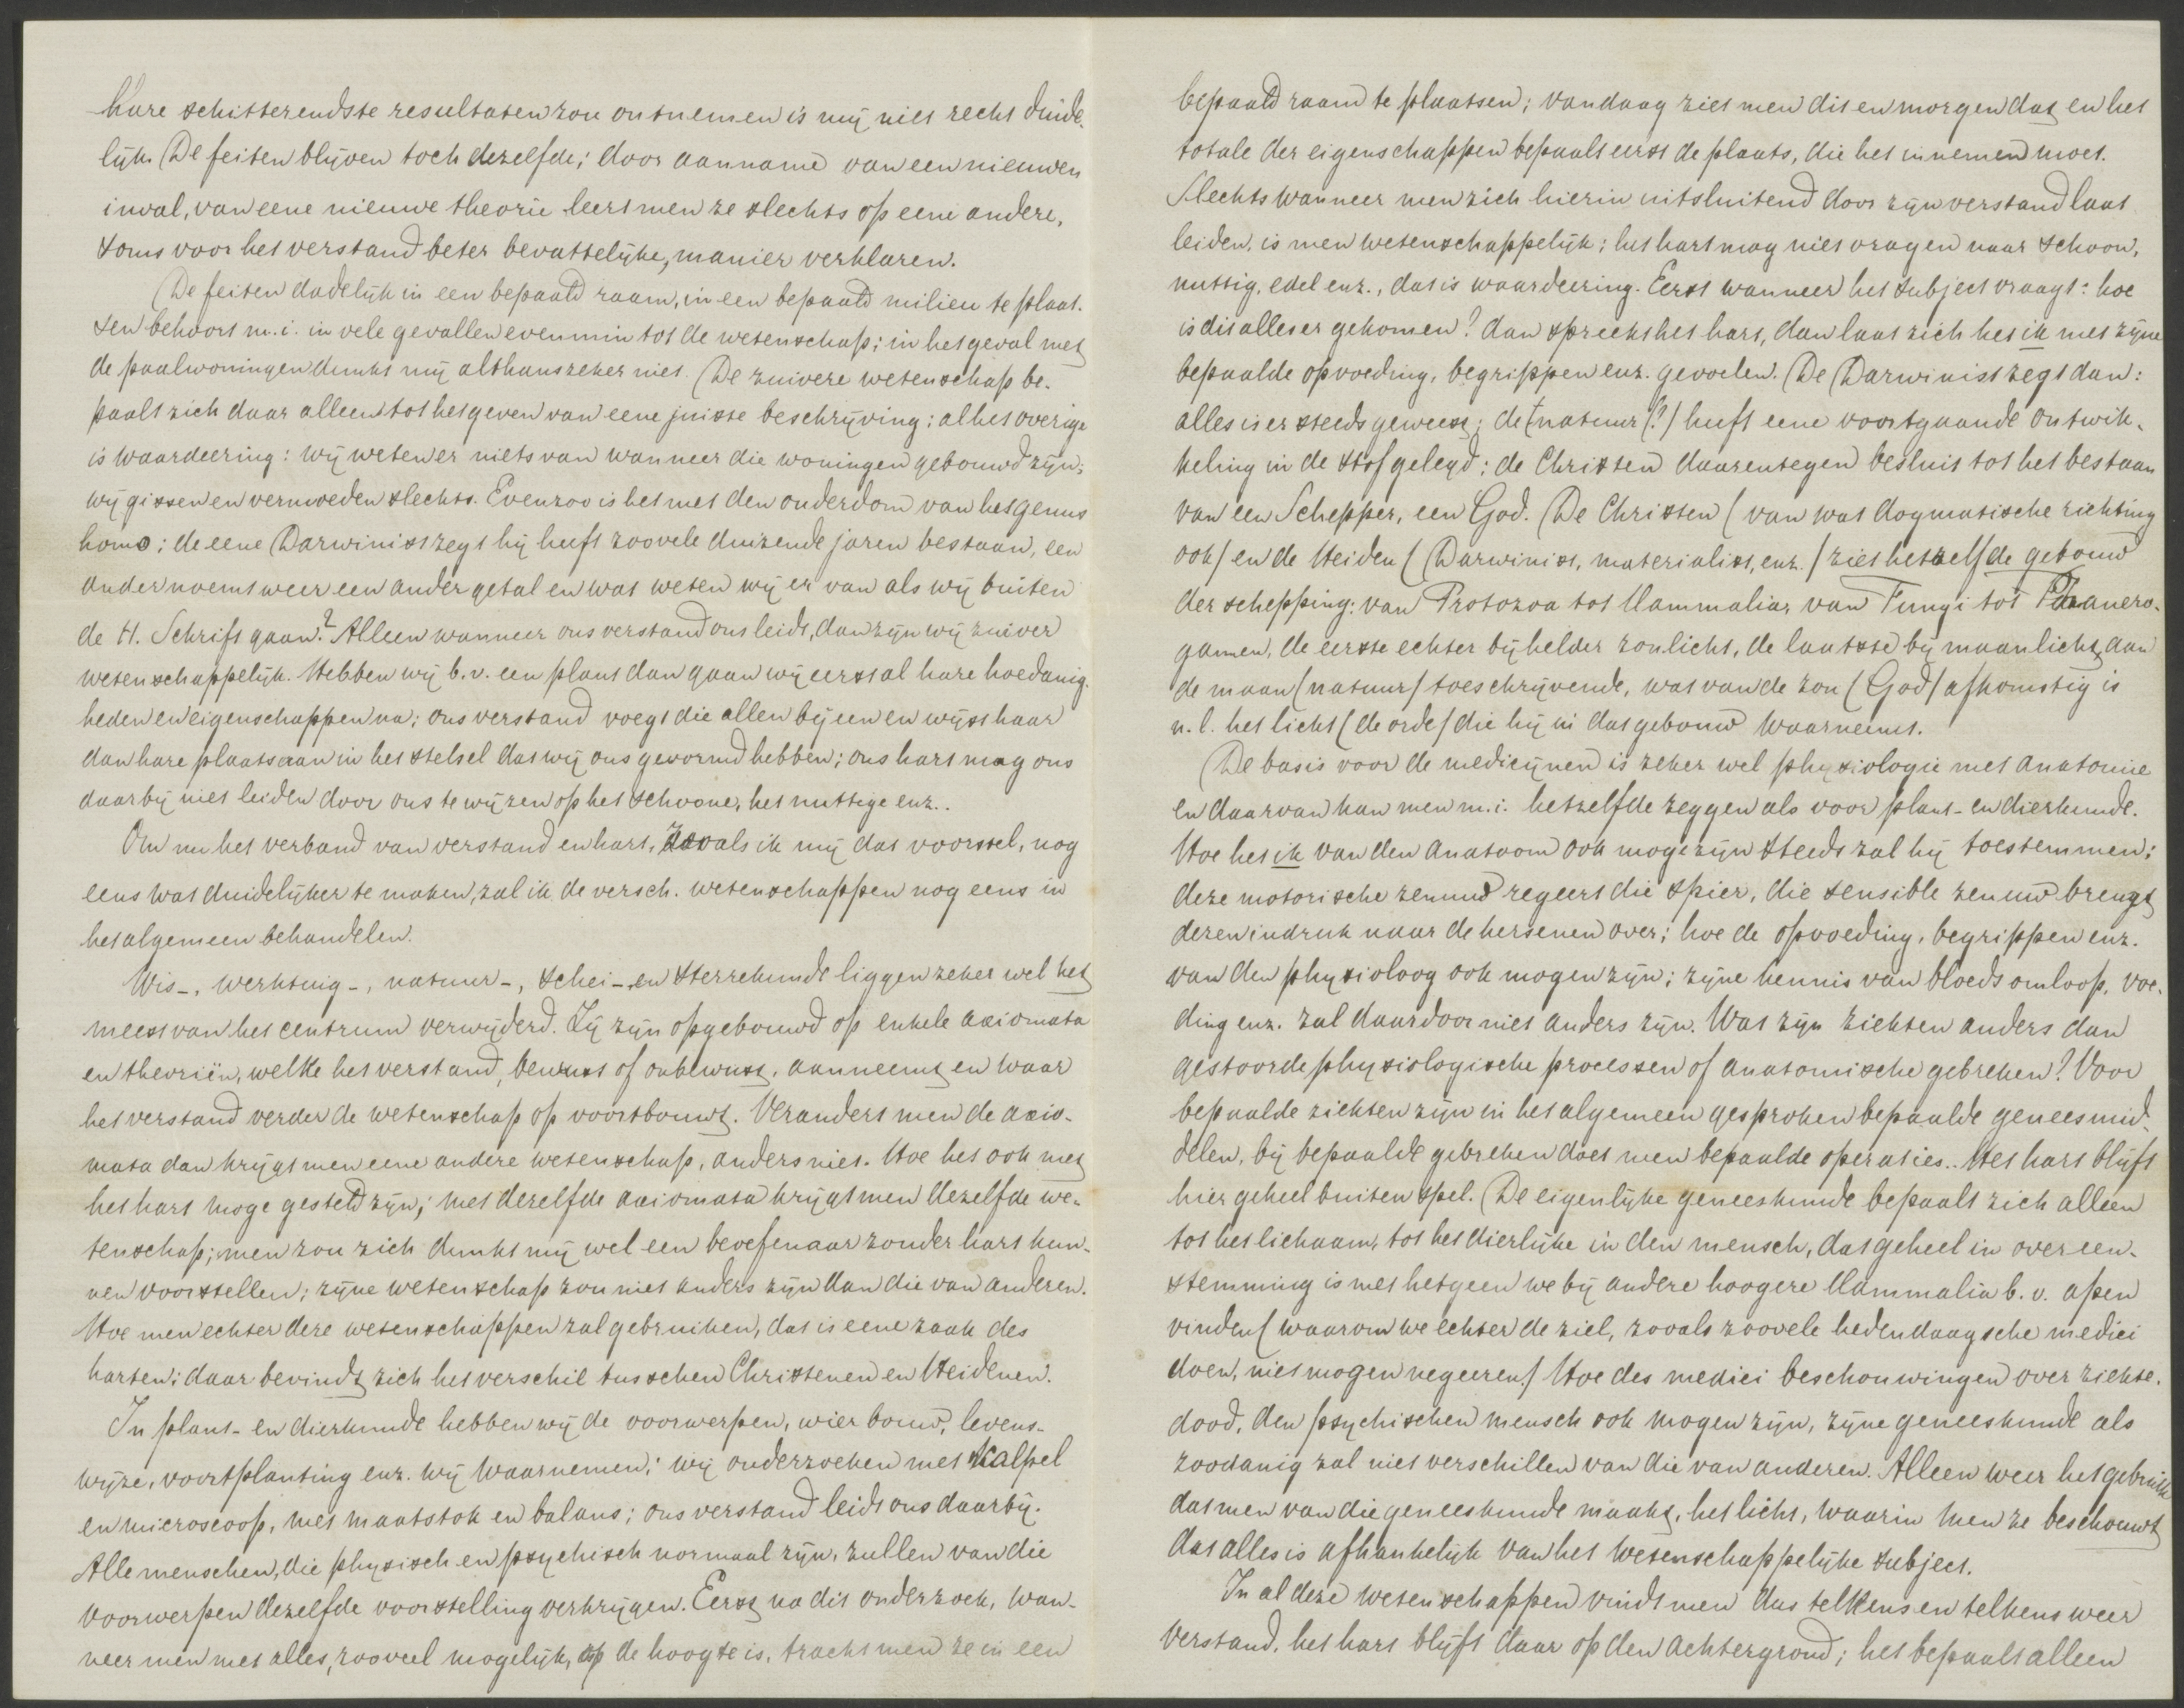 hare schitterendste resultaten zou ontnemen is mij niet recht duide-
lijk. De feiten blijven toch dezelfde; door aanname van een nieuwen
inval, van eene nieuwe theorie leert men ze slechts op eene andere,
soms voor het verstand beter bevattelijke, manier verklaren.
De feiten dadelijk in een bepaald raam, in een bepaald milieu te plaat-
sen behoort m.i. in vele gevallen evenmin tot de wetenschap; in het geval met
de paalwoningen dunkt mij althans zeker niet. De zuivere wetenschap be-
paalt zich daar alleen tot het geven van eene juiste beschrijving; al het overige
is waardeering: wij weten er niets van wanneer die woningen gebouwd zijn;
wij gissen en vermoeden slechts. Evenzoo is het met den ouderdom van het genus
homo; de eene Darwinist zegt hij heeft zoovele duizende jaren bestaan, een
ander noemt weer een ander getal en wat weten wij er van als wij buiten
de H. Schrift gaan? Alleen wanneer ons verstand ons leidt, dan zijn wij zuiver
wetenschappelijk. Hebben wij b.v. een plant dan gaan wij eerst al hare hoedanig-
heden en eigenschappen na; ons verstand voegt die allen bijeen en wijst haar
dan hare plaats aan in het stelsel dat wij ons gevormd hebben; ons hart mag ons
daarbij niet leiden door ons te wijzen op het schoone, het nuttige enz..
Om nu het verband van verstand en hart, zooals ik mij dat voorstel, nog
eens wat duidelijker te maken, zal ik de versch. wetenschappen nog eens in
het algemeen behandelen.
Wis-, werktuig-, natuur-, schei- en sterrekunde liggen zeker wel het
meest van het centrum verwijderd. Zij zijn opgebouwd op enkele axiomata
en theoriën, welke het verstand, bewust of onbewust, aanneemt en waar
het verstand verder de wetenschap op voortbouwt. Verandert men de axio-
mata dan krijgt men eene andere wetenschap, anders niet. Hoe het ook met
het hart moge gesteld zijn; met dezelfde axiomata krijgt men dezelfde we-
tenschap; men zou zich dunkt mij wel een beoefenaar zonder hart kun-
nen voorstellen; zijne wetenschap zou niet anders zijn dan die van anderen.
Hoe men echter deze wetenschappen zal gebruiken, dat is eene zaak des
harten; daar bevindt zich het verschil tusschen Christenen en Heidenen.
In plant- en dierkunde hebben wij de voorwerpen, wier bouw, levens-
wijze, voortplanting enz. wij waarnemen; wij onderzoeken met skalpel
en microscoop, met maatstok en balans; ons verstand leidt ons daarbij.
Alle menschen, die physisch en psychisch normaal zijn, zullen van die
voorwerpen dezelfde voorstelling verkrijgen. Eerst na dit onderzoek, wan-
neer men met alles, zooveel mogelijk, op de hoogte is, tracht men ze in een
bepaald raam te plaatsen; vandaag ziet men dit en morgen dat en het
totale der eigenschappen bepaalt eerst de plaats, die het innemen moet.
Slechts wanneer men zich hierin uitsluitend door zijn verstand laat
leiden, is men wetenschappelijk; het hart mag niet vragen naar schoon,
nuttig, edel enz., dat is waardeering. Eerst wanneer het subject vraagt: hoe
is dit alles er gekomen? dan spreekt het hart, dan laat zich het ik met zijne
bepaalde opvoeding, begrippen enz. gevoelen. De Darwinist zegt dan:
alles is er steeds geweest; de natuur (?) heeft eene voortgaande ontwik-
keling in de stof gelegd; de Christen daarentegen besluit tot het bestaan
van een Schepper, een God. De Christen (van wat dogmatische richting
ook) en de Heiden (Darwinist, materialist, enz.) ziet hetzelfde gebouw
der schepping: van Protozoa tot Mammaliar van Fungi tot Phanero-
gamen, de eerste echter bij helder zonlicht, de laatste bij maanlicht, aan
de maan (natuur) toeschrijvende, wat van de zon (God) afkomstig is
n.l. het licht (de orde) die hij in dat gebouw waarneemt.
De basis voor de medicijnen is zeker wel physiologie met anatomie
en daarvan kan men m.i. hetzelfde zeggen als voor plant- en dierkunde.
Hoe het ik van den anatoom ook moge zijn steeds zal hij toestemmen:
deze motorische zenuw regeert die spier, die sensible zenuw brengt
dezen indruk naar de hersenen over; hoe de opvoeding, begrippen enz.
van den physioloog ook mogen zijn; zijne kennis van bloedsomloop, voe-
ding enz. zal daardoor niet anders zijn. Wat zijn ziekten anders dan
gestoorde physiologische processen of anatomische gebreken? Voor
bepaalde ziekten zijn in het algemeen gesproken bepaalde geneesmid-
delen, bij bepaalde gebreken doet men bepaalde operaties.. Het hart blijft
hier geheel buiten spel. De eigenlijke geneeskunde bepaalt zich alleen
tot het lichaam, tot het dierlijke in den mensch, dat geheel in overeen-
stemming is met hetgeen we bij andere hoogere Mammalia b.v. apen
vinden (waarom we echter de ziel, zooals zoovele hedendaagsche medici
doen, niet mogen negeeren) Hoe des medici beschouwingen over ziekte,
dood, den psychischen mensch ook mogen zijn, zijne geneeskunde als
zoodanig zal niet verschillen van die van anderen. Alleen weer het gebruik
dat men van die geneeskunde maakt, het licht, waarin men ze beschouwt
dat alles is afhankelijk van het wetenschappelijke subject.
In al deze wetenschappen vindt men dus telkens en telkens weer
verstand, het hart blijft daar op den achtergrond; het bepaalt alleen